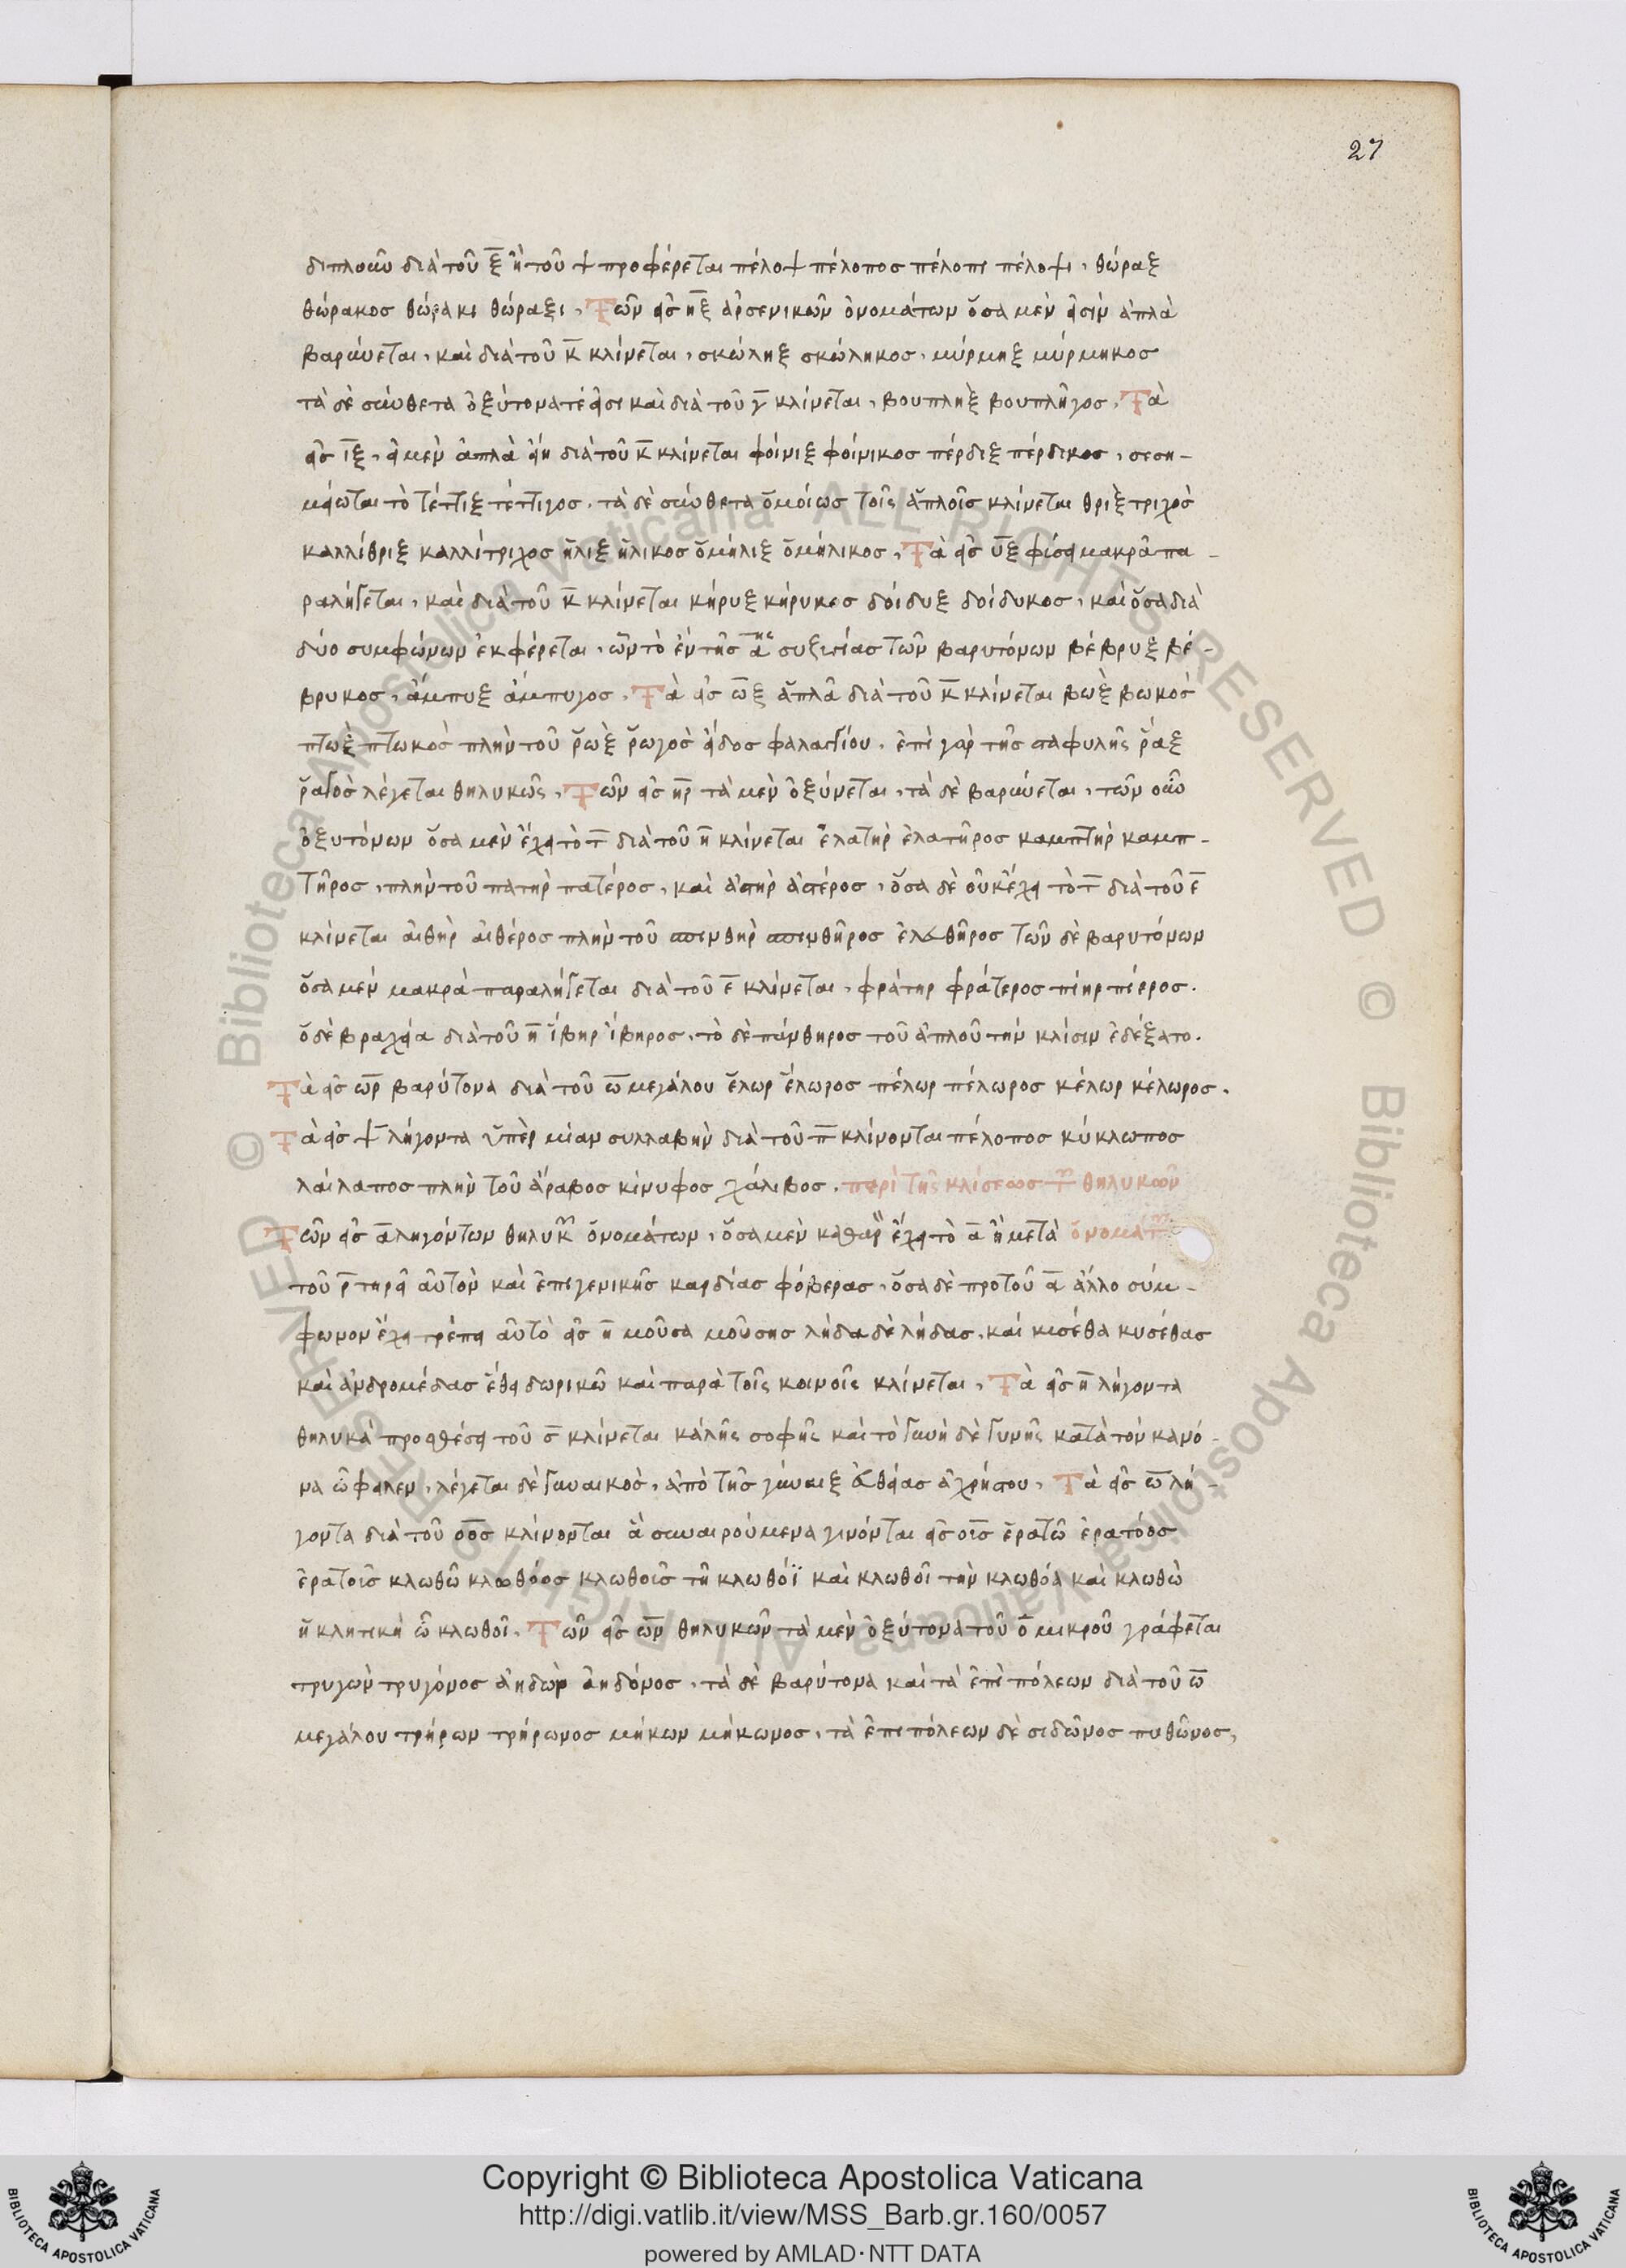 27
διπλοῦν διὰ τοῦ ξ ἢ τοῦ ψ προφέρεται πέλοψ πέλοπος πέλοπι πέλοψι, θώραξ
θώρακος θώρακι θώραξι, Τῶν εἰς ηξ ἀρσενικῶν ὀνομάτων ὅσα μὲν εἰσὶν ἁπλὰ
βαρύνεται, καὶ διὰ τοῦ κ κλίνεται, σκώληξ σκώληκος, μύρμηξ μύρμηκος
τὰ δὲ σύνθετα ὀξύτονα τέ εἰσι καὶ διὰ τοῦ γ κλίνεται, βουπλὴξ βουπλῆγος, Τὰ
εἰς ιξ, εἰ μὲν ἁπλὰ εἴη διὰ τοῦ κ κλίνεται φοίνιξ φοίνικος πέρδιξ πέρδικος, σεση-
μείωται τὸ τέττιξ τέττιγος, τὰ δὲ σύνθετα ὁμοίως τοῖς ἁπλοῖς κλίνεται θρὶξ τριχὸς
καλλίθριξ καλλίτριχος ἧλιξ ἥλικος ὁμήλιξ ὁμήλικος, Τὰ εἰς υξ φύσει μακρᾶ πα-
ραλήγεται, καὶ διὰ τοῦ κ κλίνεται κήρυξ κήρυκος δοίδυξ δοίδυκος, καὶ ὅσα διὰ
δύο συμφώνων ἐκφέρεται, ὧν τὸ ἓν τῆς α ης συζυγίας τῶν βαρυτόνων βέβρυξ βέ-
βρυκος, ἄμπυξ ἄμπυγος, Τὰ εἰς ωξ ἁπλᾶ διὰ τοῦ κ κλίνεται βὼξ βωκὸς
πτὼξ πτωκὸς πλὴν τοῦ ῥὼξ ῥωγὸς εἶδος φαλαγγίου, ἐπὶ γὰρ τῆς σταφυλῆς ῥάξ
ῥαγὸς λέγεται θηλυκῶς, Τῶν εἰς ηρ τὰ μὲν ὀξύνεται, τὰ δὲ βαρύνεται, τῶν οὖν
ὀξυτόνων ὅσα μὲν ἔχει τὸ τ διὰ τοῦ η κλίνεται ἐλατὴρ ἐλατῆρος καμπτὴρ καμπ-
τῆρος, πλὴν τοῦ πατὴρ πατέρος, καὶ ἀστὴρ ἀστέρος, ὅσα δὲ οὐκ ἔχει τὸ τ διὰ τοῦ ε
κλίνεται αἰθὴρ αἰθέρος πλὴν τοῦ σπινθὴρ σπινθῆρος ἐλευθῆρος τῶν δὲ βαρυτόνων
ὅσα μὲν μακρὰ παραλήγεται διὰ τοῦ ε κλίνεται, φράτηρ φράτερος πίηρ πίερος.
ὁ δὲ βραχεία διὰ τοῦ η ἴβηρ ἴβηρος, τὸ δὲ πάνθηρος τοῦ ἁπλοῦ τὴν κλίσιν ἐδέξατο.
Τὰ εἰς ωρ βαρύτονα διὰ τοῦ ω μεγάλου ἕλωρ ἕλωρος πέλωρ πέλωρος κέλωρ κέλωρος.
Τὰ εἰς ψ λήγοντα ὑπὲρ μίαν συλλαβὴν διὰ τοῦ π κλίνονται πέλοπος κύκλωπος
λαίλαπος πλὴν τοῦ ἄραβος κίνυφος χάλιβος. περὶ τῆς κλίσεως τῶν θηλυκῶν
Τῶν εἰς α ληγόντων θηλυκῶν ὀνομάτων, ὅσα μὲν καθαρὸν ἔχει τὸ α ἢ μετὰ ὀνομάτων
τοῦ ρ τηρεῖ αὐτὸν καὶ ἐπὶ γενικῆς καρδίας φόβερας, ὅσα δὲ προ τοῦ α ἄλλο σύμ-
φωνον ἔχει τρέπει αὐτὸ εἰς η μοῦσα μούσης λήδα δὲ λήδας, καὶ κισέθα κυσέθας
καὶ ἀνδρομέδας ἔθει δωρικῶ καὶ παρὰ τοῖς κοινοῖς κλίνεται, Τὰ εἰς η λήγοντα
θηλυκὰ προσθέσει τοῦ σ κλίνεται κάλῆς σοφῆς καὶ τὸ γυνὴ δὲ γυνῆς κατὰ τὸν κανό-
να ὤφειλεν, λέγεται δὲ γυναικὸς, ἀπὸ τῆς γύναιξ εὐθείας ἀχρήστου, Τὰ εἰς ω λή-
γοντα διὰ τοῦ οος κλίνονται ἃ συναιρούμενα γινόνται εἰς οις ἐρατῶ ἐρατόος
ἐρατοῖς κλωθῶ κλωθόος κλωθοῖς τῆ κλωθόϊ καὶ κλωθοῖ τὴν κλωθόα καὶ κλωθὼ
ἡ κλητικὴ ὦ κλωθοῖ, Τῶν εἰς ων θηλυκῶν τὰ μὲν ὀξύτονα τοῦ ο μικροῦ γράφεται
τρυγὼν τρυγόνος ἀηδὼν ἀηδόνος, τὰ δὲ βαρύτονα καὶ τὰ ἐπὶ πόλεων διὰ τοῦ ω
μεγάλου τρήρων τρήρωνος μήκων μήκωνος, τὰ ἐπὶ πόλεων δὲ σιδῶνος πυθῶνος,
© Biblioteca Apostolica Vaticana ALL RIGHTS RESERVED
Copyright © Biblioteca Apostolica Vaticana
http://digi.vatlib.it/view/MSS_Barb.gr.160/0057
powered by AMLAD·NTT DATA
BIBLIOTECA APOSTOLICA VATICANA
BIBLIOTECA APOSTOLICA VATICANA